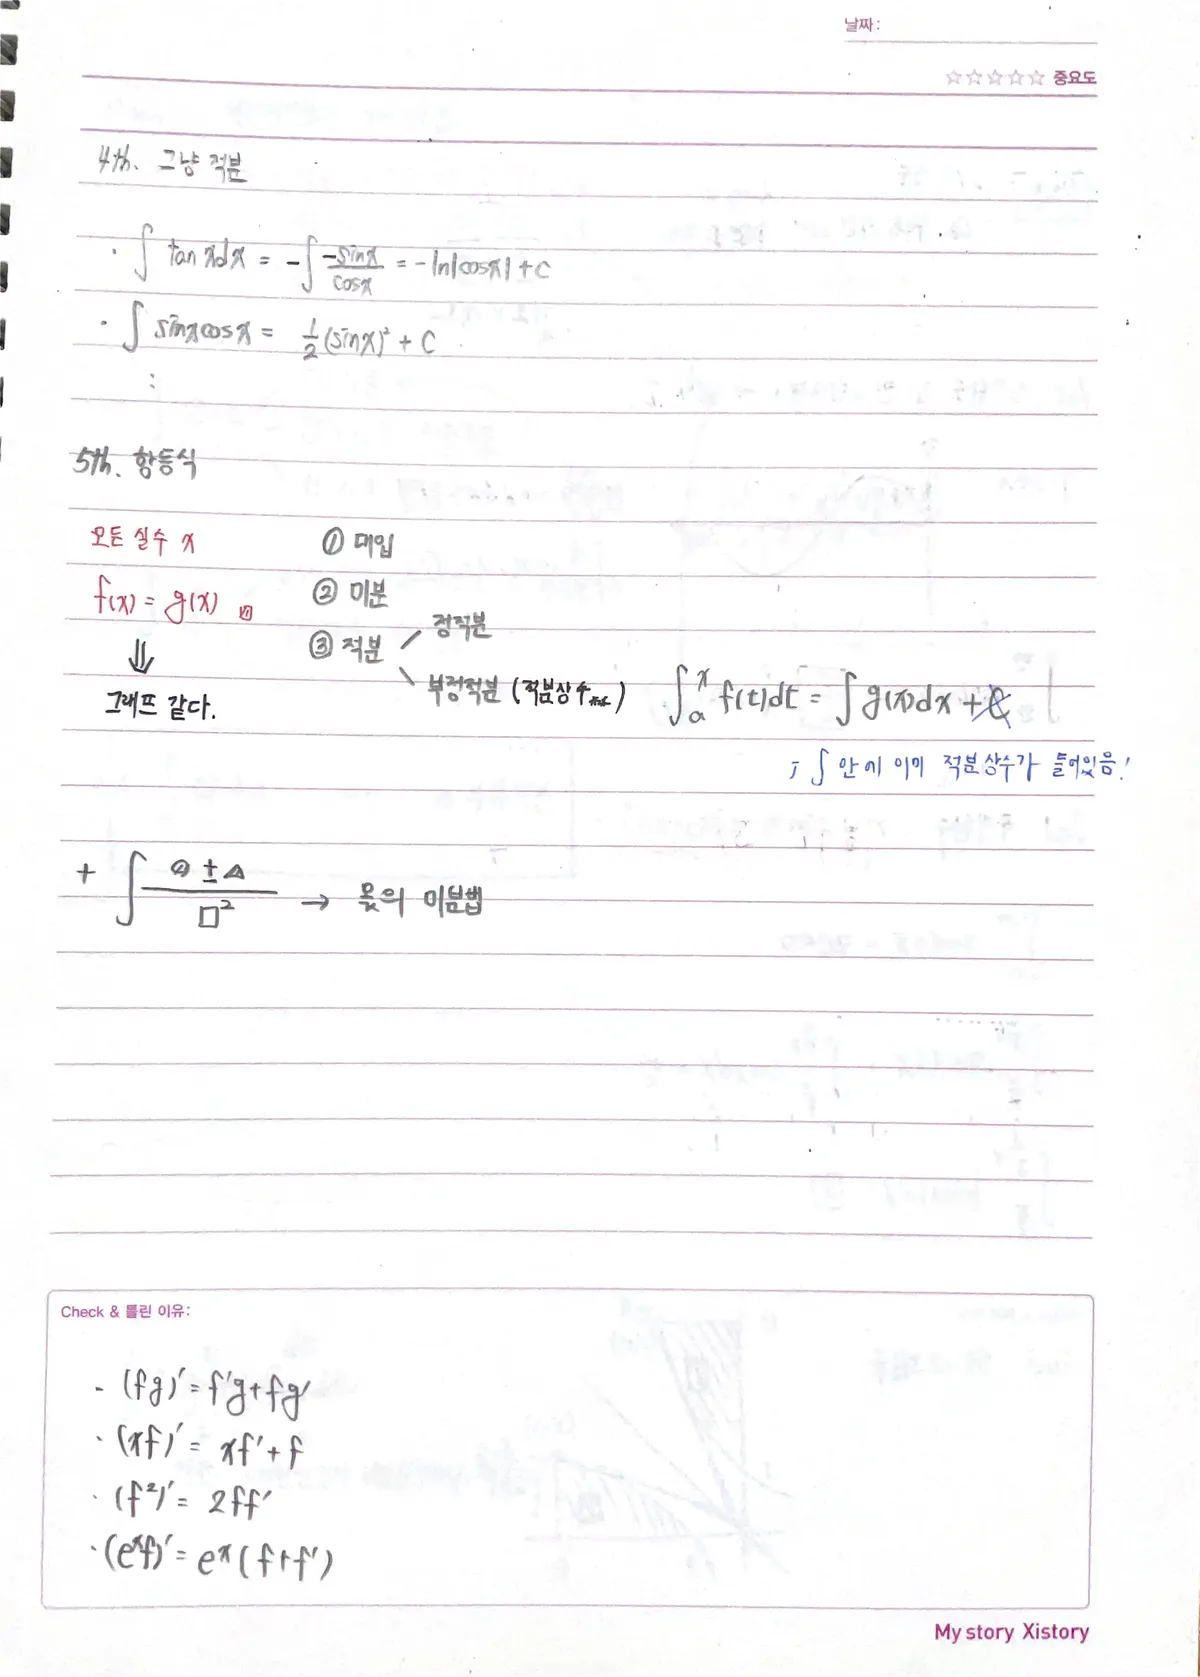 날짜 :
☆☆☆☆☆ 중요도
4th. 그냥 적분
· ∫ tan x dx = -∫ -sinx/cosx = -ln|cosx| + C
· ∫ sinx cosx = 1/2 (sinx)² + C
:
5th. 항등식
모든 실수 x ① 대입
f(x) = g(x) ② 미분
⇓ ③ 적분 정적분
그래프 같다. 부정적분 (적분상수) ∫ₐˣ f(t)dt = ∫ g(x)dx + C
∫ 안에 이미 적분상수가 들어있음!
+ ∫ ± △/□² → 몫의 미분법
Check & 틀린 이유:
- (fg)' = f'g + fg'
· (xf)' = xf' + f
· (f²)' = 2ff'
· (eˣf)' = eˣ(f+f')
My story Xistory